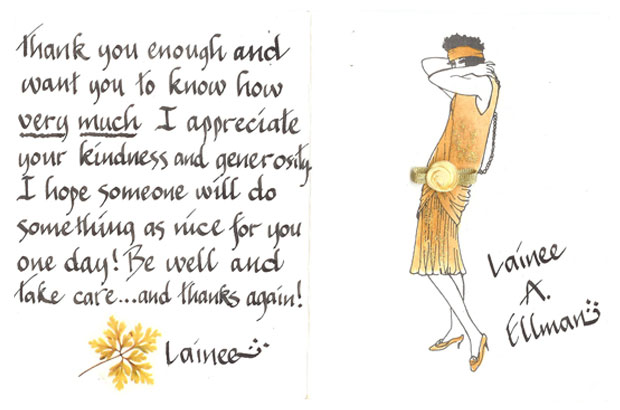 thank you enough and
want you to know how
very much I appreciate
your kindness and generosity.
I hope someone will do
something as nice for you
one day! Be well and
take care...and thanks again!
Lainee
Lainee
A.
Ellman